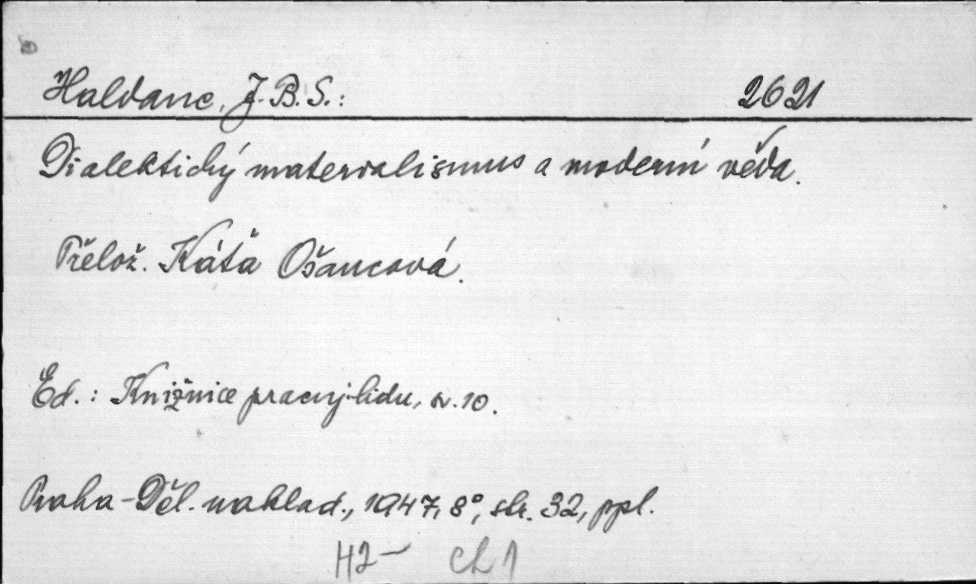 Haldane, J. B. S.: 2621
Dialektický materialismus a moderní věda.
Přelož. Káťa Ošancová.
Ed.: Knižnice prac. lidu, sv. 10.
Praha-Děl. naklad., 1947, 8°, str. 32, ppl.
H2- Ch 1